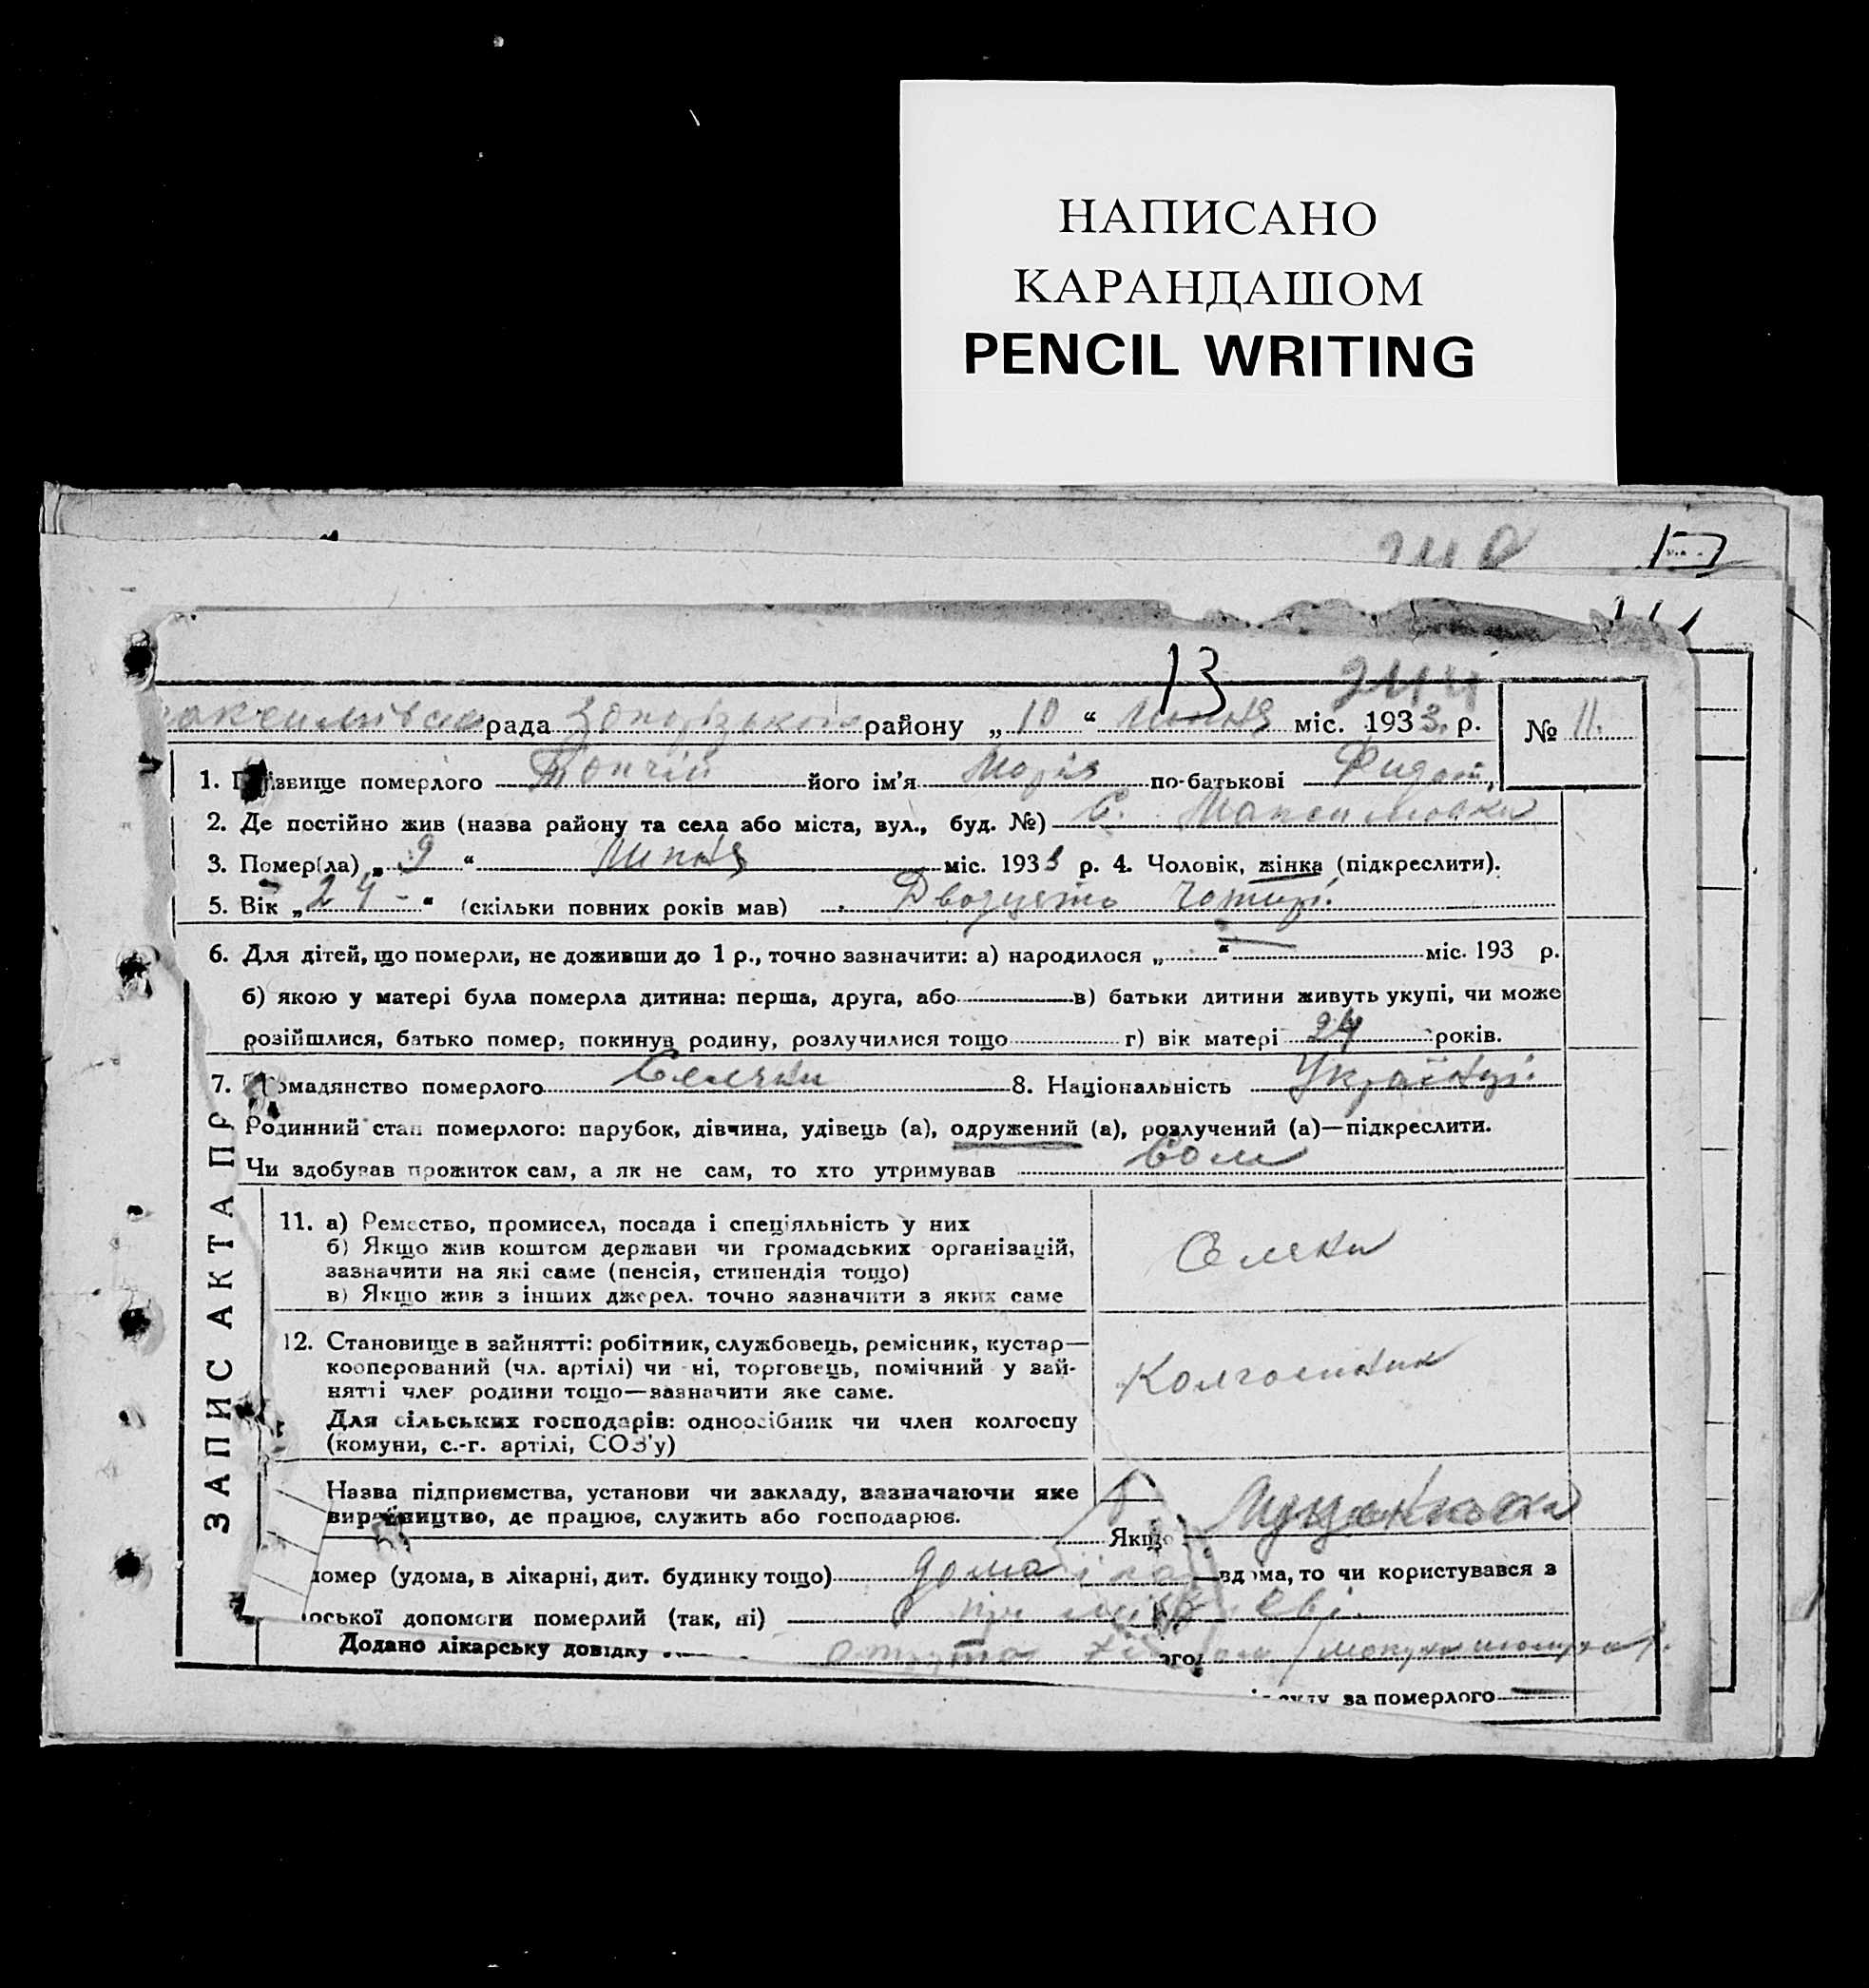 НАПИСАНО
КАРАНДАШОМ
PENCIL WRITING
13
рада Запорізького району „ 10 “ Липня міс. 1933 р. № 11.
1. Прізвище померлого Топчій його ім'я Марія по-батькові Федот
2. Де постійно жив (назва району та села або міста, вул., буд. №) С.
3. Помер(ла) „ 9 “ Липня міс. 1933 р. 4. Чоловік, жінка (підкреслити).
5. Вік „ 24 - “ (скільки повних років мав) Двадцять чотирі
6. Для дітей, що померли, не доживши до 1 р., точно зазначити: а) народилося „ “ міс. 193 р.
б) якою у матері була померла дитина: перша, друга, або в) батьки дитини живуть укупі, чи може
розійшлися, батько помер, покинув родину, розлучилися тощо г) вік матері 24 років.
7. омадянство померлого Селянки 8. Національність
Родинний стан померлого: парубок, дівчина, удівець (а), одружений (а), розлучений (а)—підкреслити.
Чи здобував прожиток сам, а як не сам, то хто утримував Сам
11. а) Ремество, промисел, посада і спеціяльність у них
б) Якщо жив коштом держави чи громадських організацій,
зазначити на які саме (пенсія, стипендія тощо)
в) Якщо жив з інших джерел. точно зазначити з яких саме
12. Становище в зайнятті: робітник, службовець, ремісник, кустар—
кооперований (чл. артілі) чи ні, торговець, помічний у зай-
нятті член родини тощо—зазначити яке саме.
Для сільських господарів: одноосібник чи член колгоспу
(комуни, с.-г. артілі, СОЗ'у)
Колгоспник
Назва підприємства, установи чи закладу, зазначаючи яке
виробництво, де працює, служить або господарює.
Якщо
помер (удома, в лікарні, дит. будинку тощо) дома вдома, то чи користувався з
рської допомоги померлий (так, ні)
Додано лікарську довідку
ого
за померлого
ЗАПИС АКТА ПР